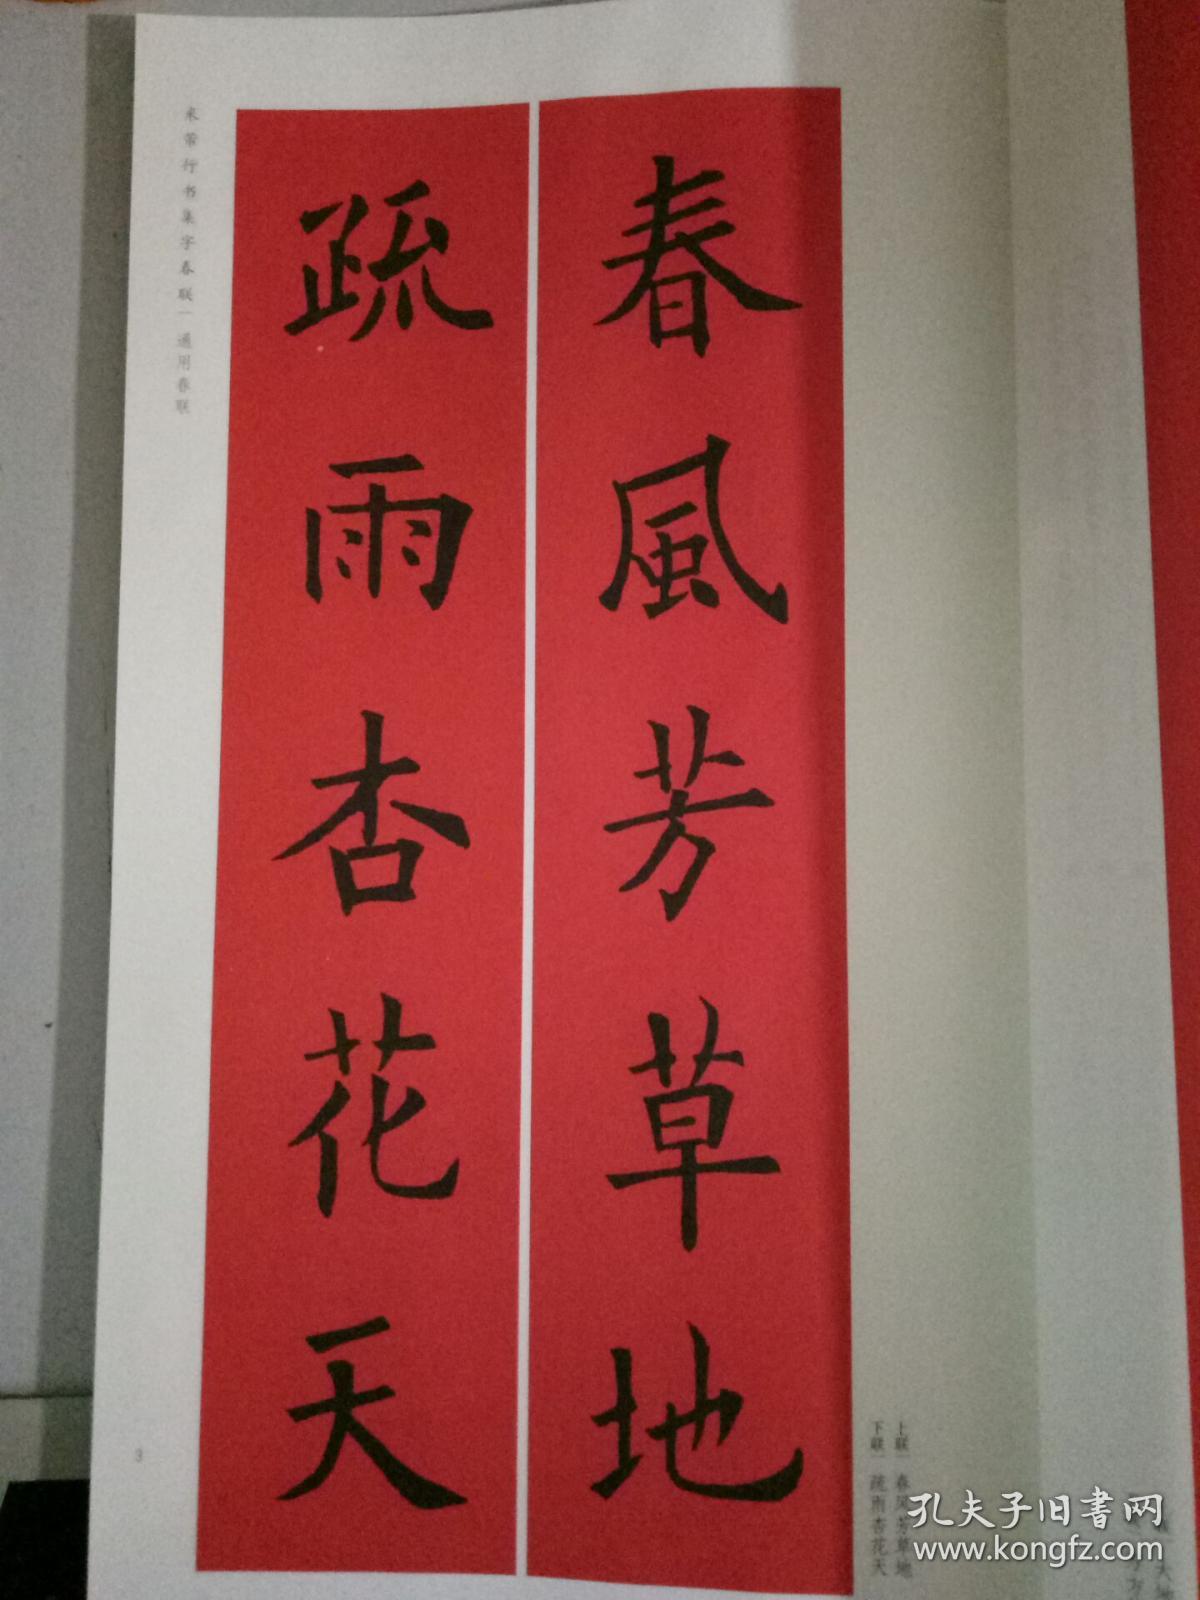 春風芳草地
疏雨杏花天
上联｜春风芳草地
下联｜疏雨杏花天
米芾行书集字春联｜通用春联
3
孔夫子旧書网
www.kongfz.com